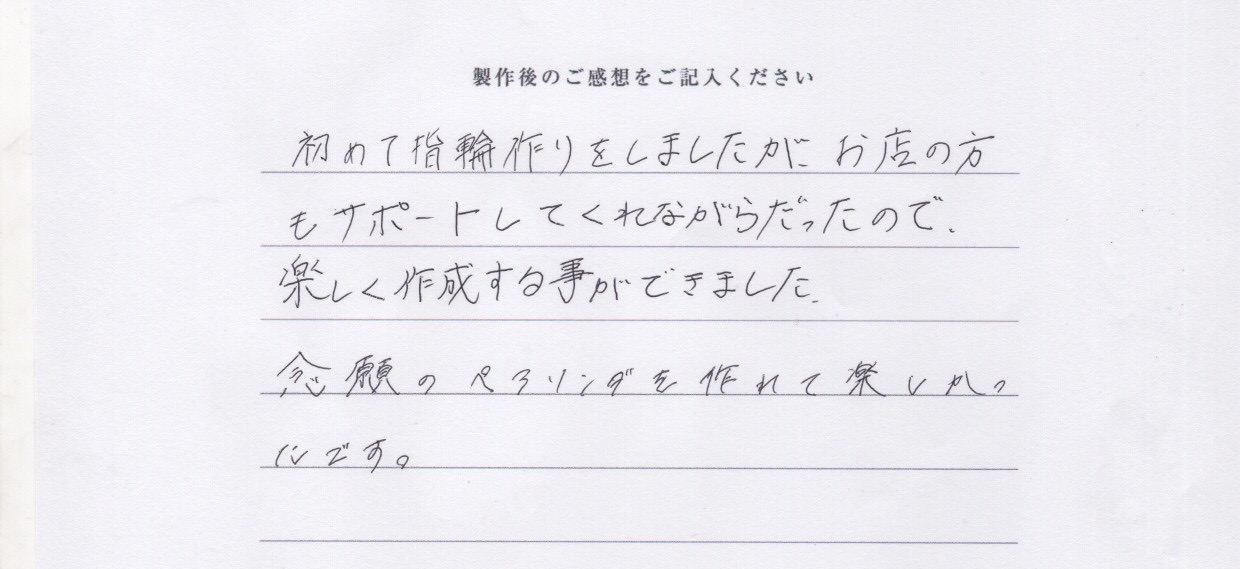 製作後のご感想をご記入ください
初めて指輪作りをしましたが、お店の方
もサポートしてくれながらだったので、
楽しく作成する事ができました。
念願のペアリングを作れて楽しかっ
たです。